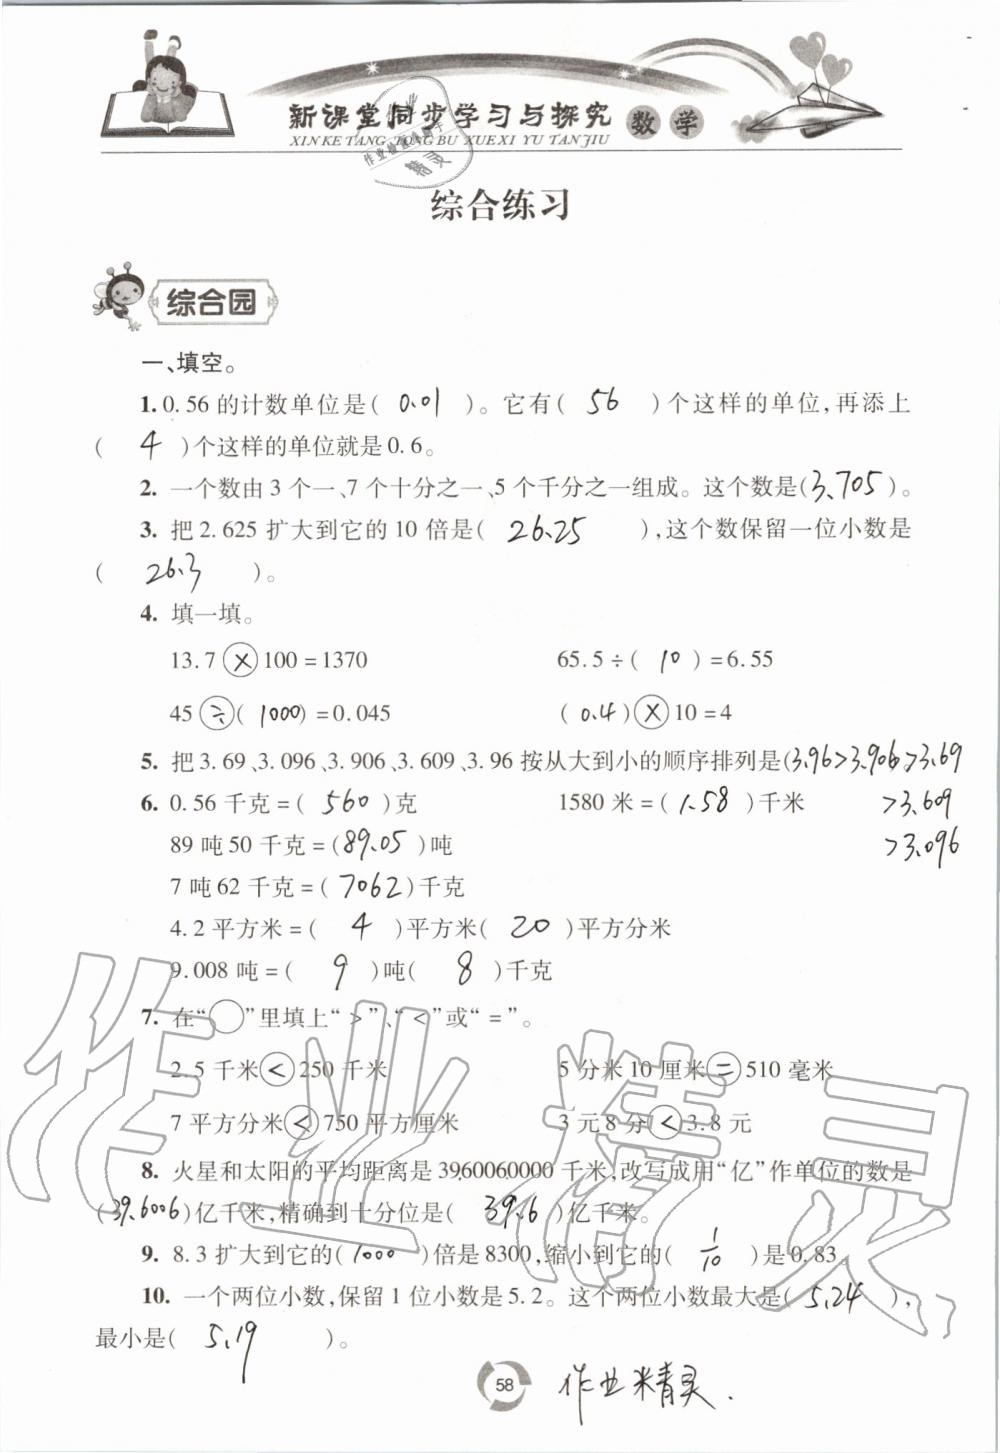 新课堂同步学习与探究 数学
XIN KE TANG TONG BU XUE XI YU TAN JIU
作业精灵
综合练习
综合园
一、填空。
1. 0.56的计数单位是( 0.01 )。它有( 56 )个这样的单位,再添上
( 4 )个这样的单位就是0.6。
2. 一个数由3个一、7个十分之一、5个千分之一组成。这个数是(3.705)。
3. 把2.625扩大到它的10倍是( 26.25 ),这个数保留一位小数是
( 26.3 )。
4. 填一填。
13.7 × 100 = 1370 65.5 ÷ ( 10 ) = 6.55
45 ÷ ( 1000 ) = 0.045 ( 0.4 ) × 10 = 4
5. 把3.69、3.096、3.906、3.609、3.96按从大到小的顺序排列是(3.96>3.906>3.69
>3.609
>3.096
6. 0.56千克=( 560 )克 1580米=( 1.58 )千米
89吨50千克=(89.05)吨
7吨62千克=(7062)千克
4.2平方米=( 4 )平方米( 20 )平方分米
9.008吨=( 9 )吨( 8 )千克
7. 在“○”里填上“>”、“<”或“=”。
2.5千米<250千米 5分米10厘米=510毫米
7平方分米<750平方厘米 3元8分<3.8元
8. 火星和太阳的平均距离是3960060000千米,改写成用“亿”作单位的数是
(39.6006)亿千米,精确到十分位是( 39.6 )亿千米。
9. 8.3扩大到它的( 1000 )倍是8300,缩小到它的( 1/10 )是0.83。
10. 一个两位小数,保留1位小数是5.2。这个两位小数最大是( 5.24 ),
最小是( 5.19 )。
58
作业精灵.
作业精灵